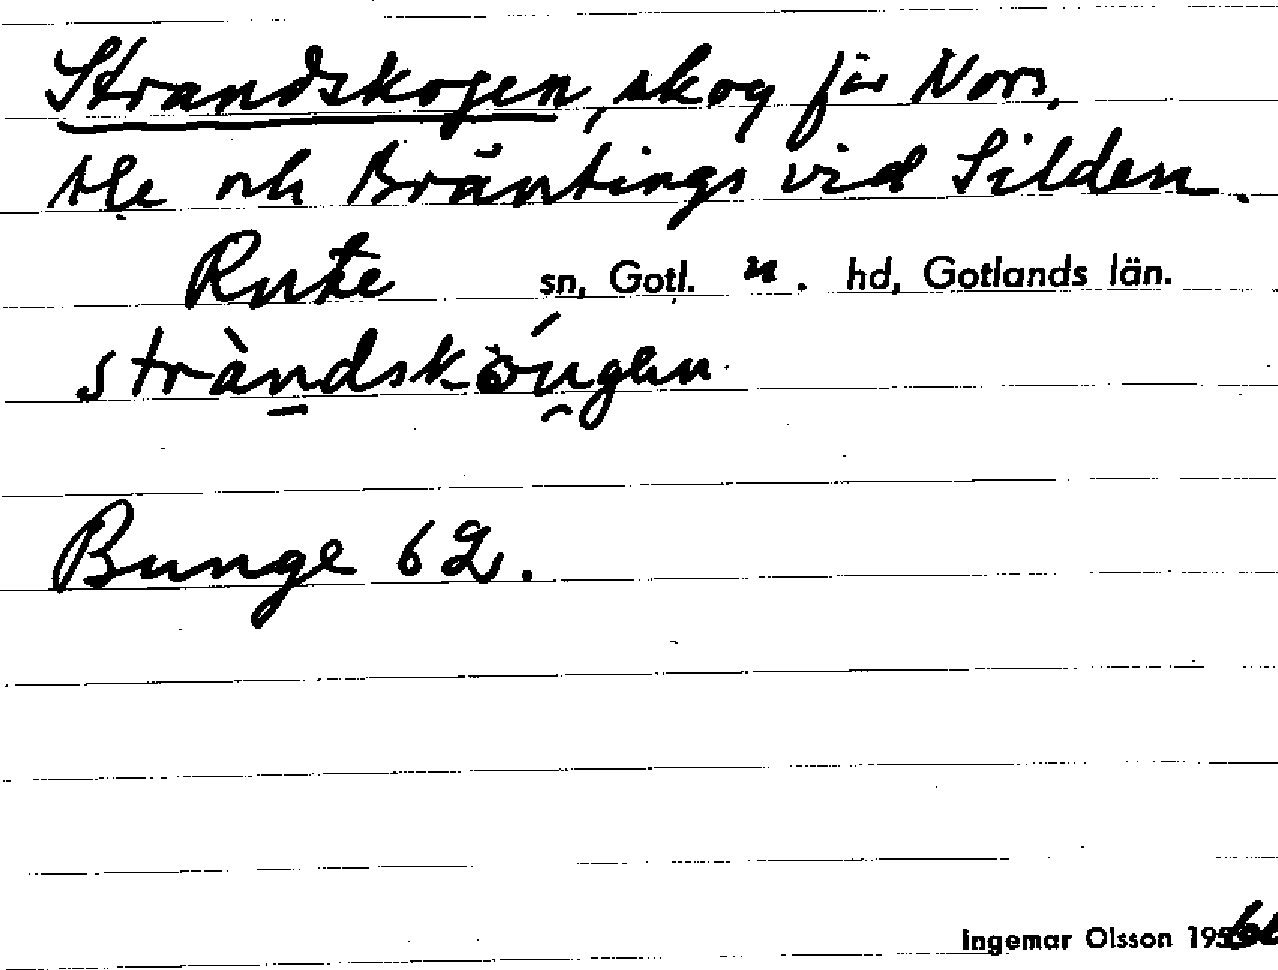 Strandskogen, skog för Nors,
Ale och Bräntings vid Silden.
Rute sn, Gotl. n. hd, Gotlands län.
stràndskóugen
Bunge 62.
Ingemar Olsson 19